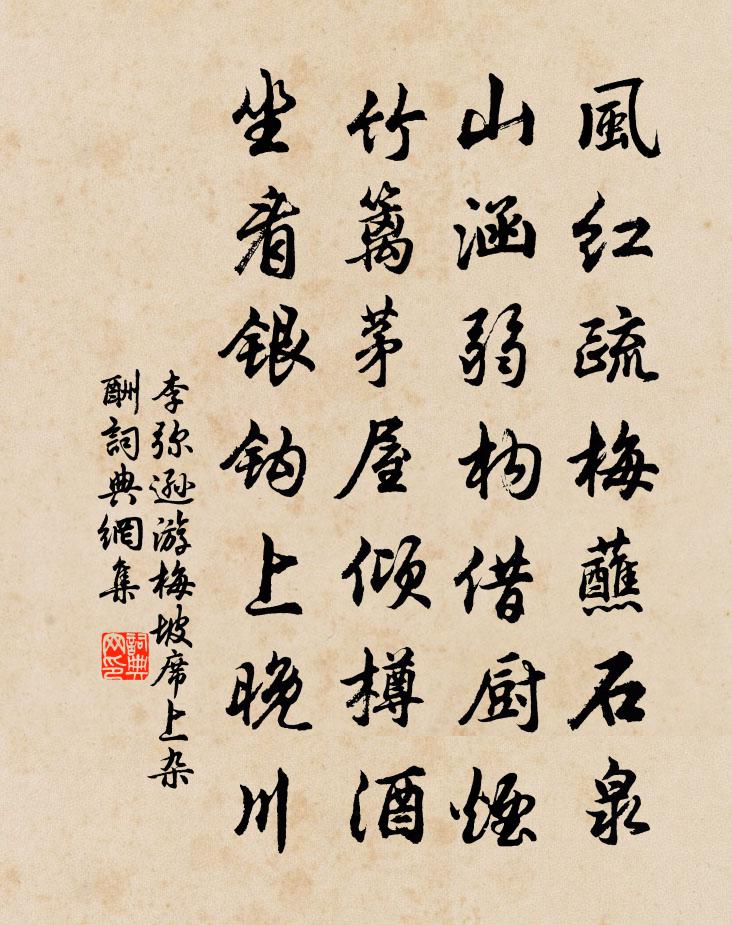 風紅疏梅蘸石泉
山涵弱柳借厨煙
竹籬茅屋傾樽酒
坐看銀鈎上晚川
李弥遜游梅坡席上杂
酬詞典網集
詞典网印